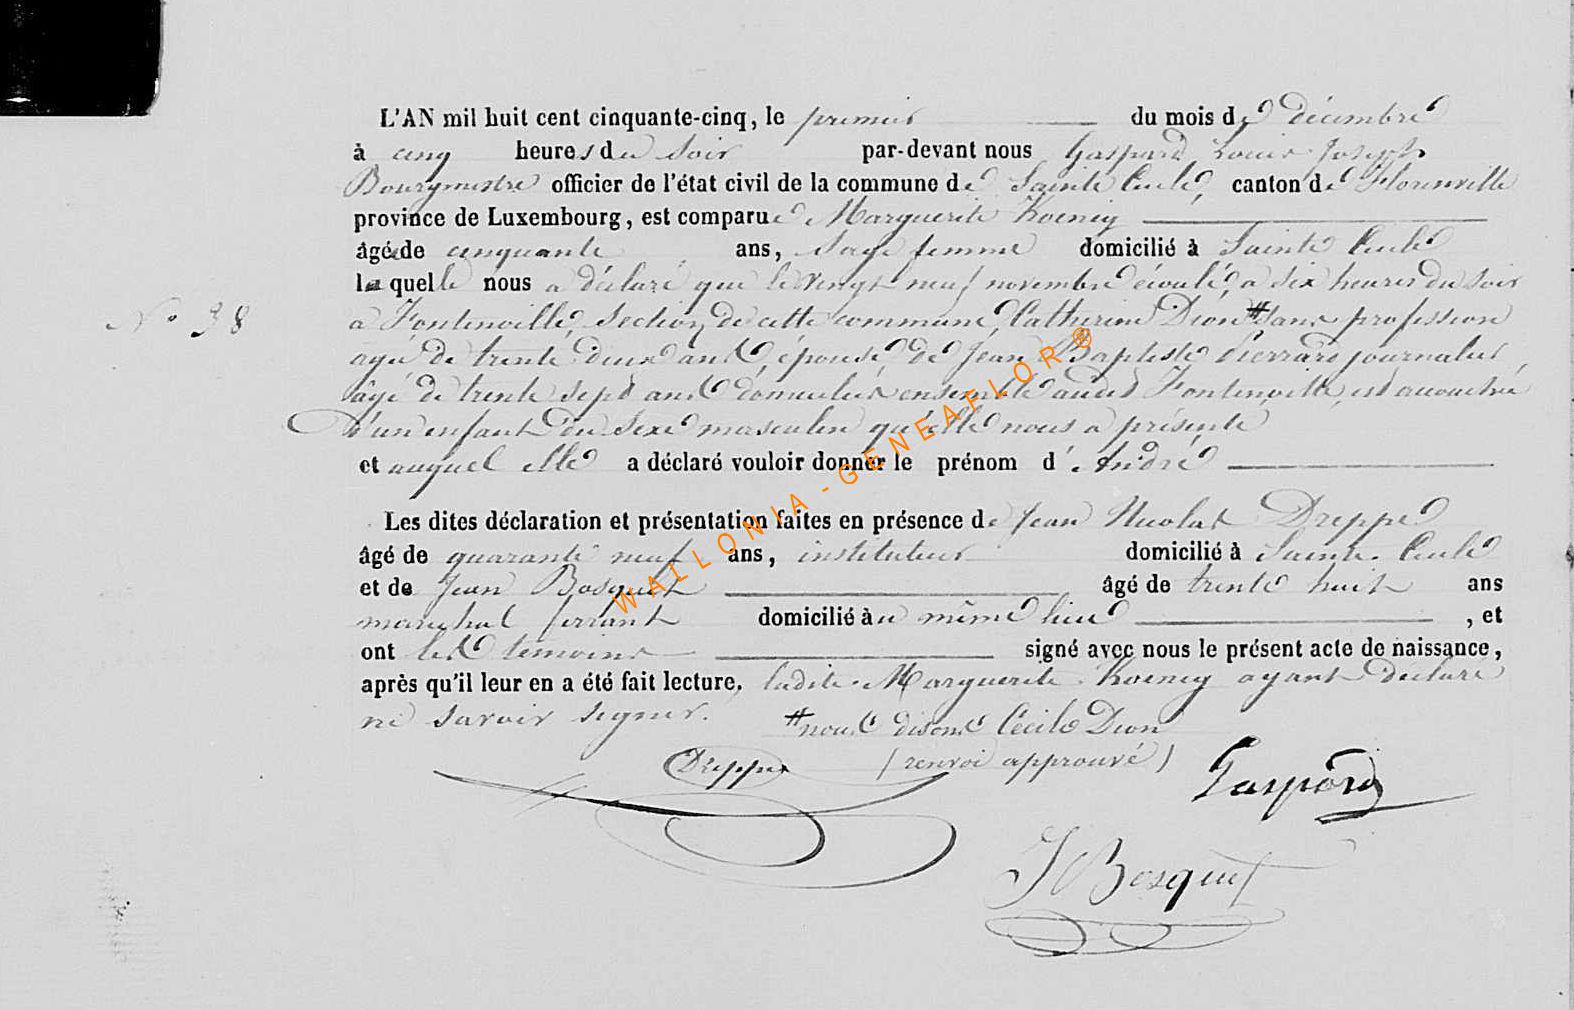 L'AN mil huit cent cinquante-cinq, le premier du mois de décembre
à cinq heures du soir par-devant nous Gaspard Louis Joseph
Bourgmestre officier de l'état civil de la commune de Sainte Cécile, canton de Florenville
province de Luxembourg, est comparue Marguerite Koenig
âgée de cinquante ans, sage femme domicilié à Sainte Cécile
laquelle nous a déclaré que le vingt neuf novembre écoulé, à six heures du soir
N° 38
à Fontenoille, section de cette commune, Catherine Dion # sans profession
agée de trente deux ans, épouse de Jean Baptiste Pierrard journalier
âgé de trente sept ans domiciliés ensemble audit Fontenoille, est accouchée
d'un enfant du sexe masculin qu'elle nous a présenté
et auquel elle a déclaré vouloir donner le prénom d'André
Les dites déclaration et présentation faites en présence de Jean Nicolas Dreppe
âgé de quarante neuf ans, instituteur domicilié à Sainte Cécile
et de Jean Bosquet âgé de trente huit ans
maréchal ferrant domicilié au même lieu , et
ont les témoins signé avec nous le présent acte de naissance,
après qu'il leur en a été fait lecture, ladite Marguerite Koenig ayant déclaré
ne savoir signer. # nous disons Cécile Dion
(renvoi approuvé)
Dreppe
Gaspard
J Bosquet
WALLONIA-GENEAFLOR®